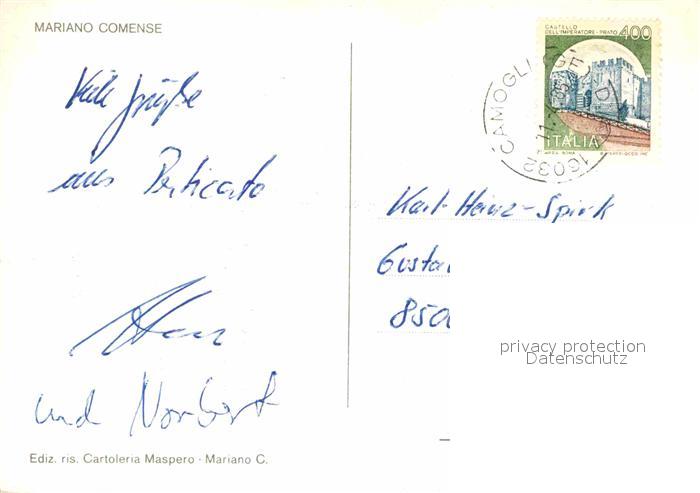 MARIANO COMENSE
CASTELLO
DELL'IMPERATORE - PRATO 400
ITALIA
16032 CAMOGLI (GE)
11.
Viele Grüße
aus Perticato
Karl-Heinz-Spirk
Gustav
850
und Norbert
privacy protection
Datenschutz
Ediz. ris. Cartoleria Maspero - Mariano C.